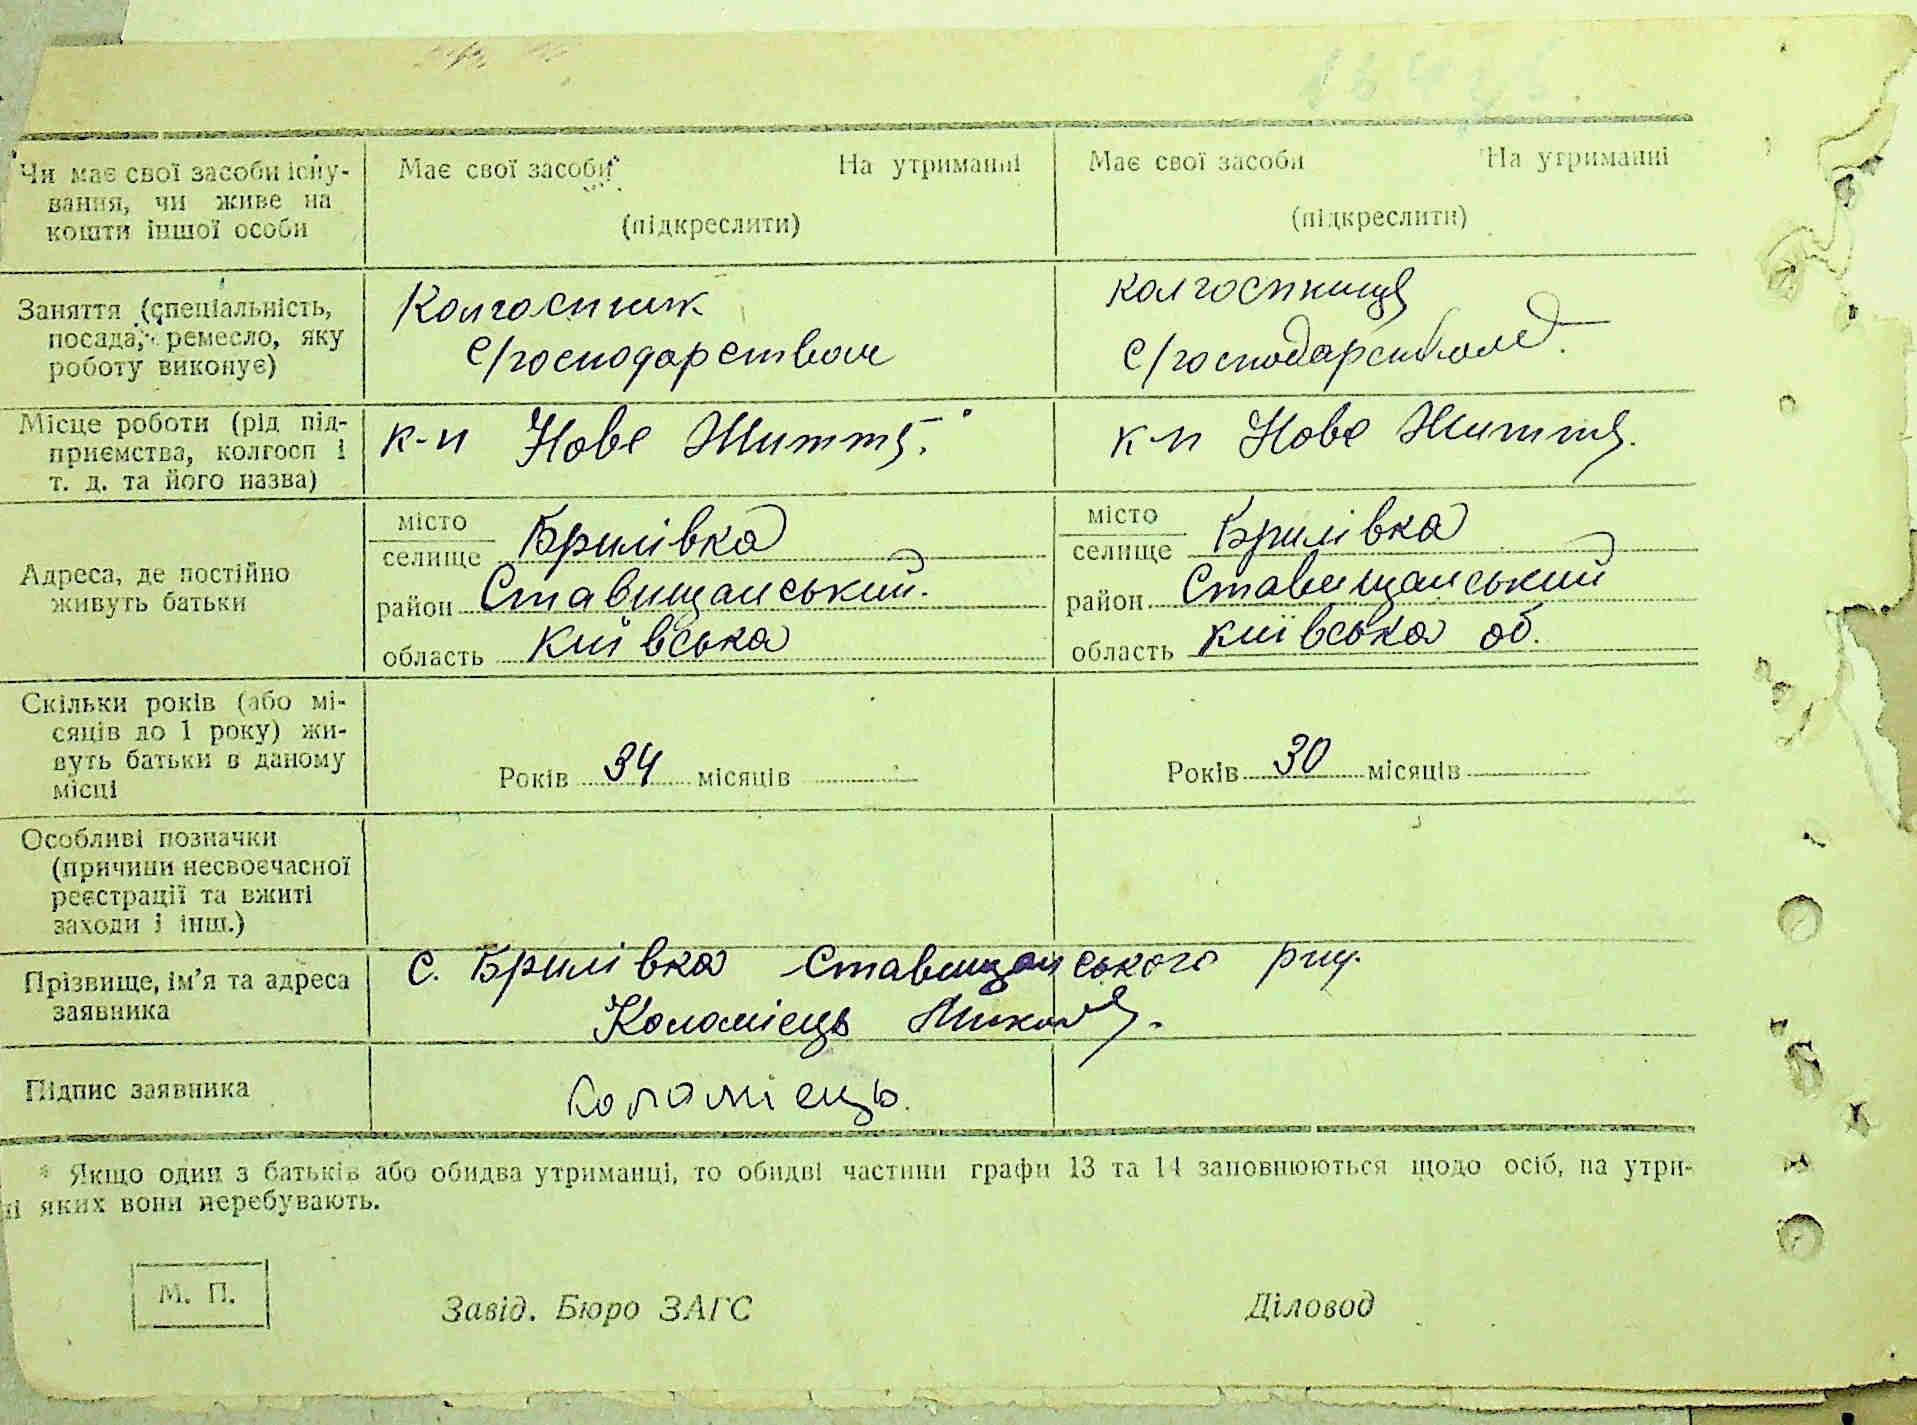 Чи має свої засоби існу-
вання, чи живе на
кошти іншої особи
Має свої засоби На утриманні
(підкреслити)
Має свої засоби На утриманні
(підкреслити)
Заняття (спеціальність,
посада, ремесло, яку
роботу виконує)
Колгоспник
С/господарством
колгоспниця
С/господарством
Місце роботи (рід під-
приємства, колгосп і
т. д. та його назва)
к-п Нове Життя.
к-п Нове Життя.
Адреса, де постійно
живуть батьки
місто
селище Брилівка
район Ставищанський.
область київська
місто
селище Брилівка
район Ставищанський
область київська об.
Скільки років (або мі-
сяців до 1 року) жи-
вуть батьки в даному
місці
Років 34 місяців
Років 30 місяців
Особливі позначки
(причини несвоєчасної
реєстрації та вжиті
заходи і інш.)
Прізвище, ім'я та адреса
заявника
с. Брилівка Ставищанського
Коломієць Микола.
Підпис заявника
Коломієць.
* Якщо один з батьків або обидва утриманці, то обидві частини графи 13 та 14 заповнюються щодо осіб, на утри-
ні яких вони перебувають.
М. П.
Завід. Бюро ЗАГС
Діловод